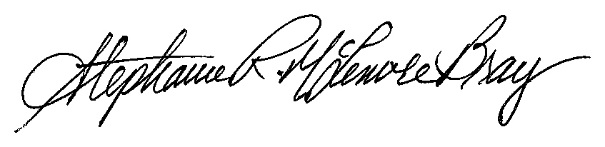 Stephanie R. McLemore Bray